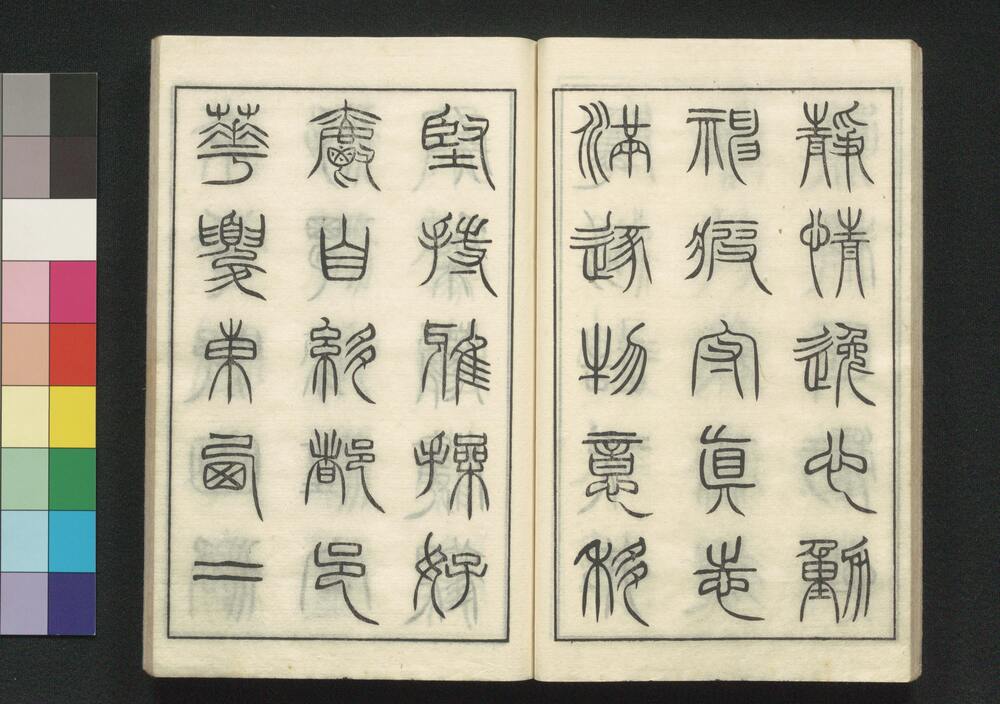 靜情逸心動
神疲守眞志
滿逐物意移
堅持雅操好
爵自縻都邑
華夏東西二